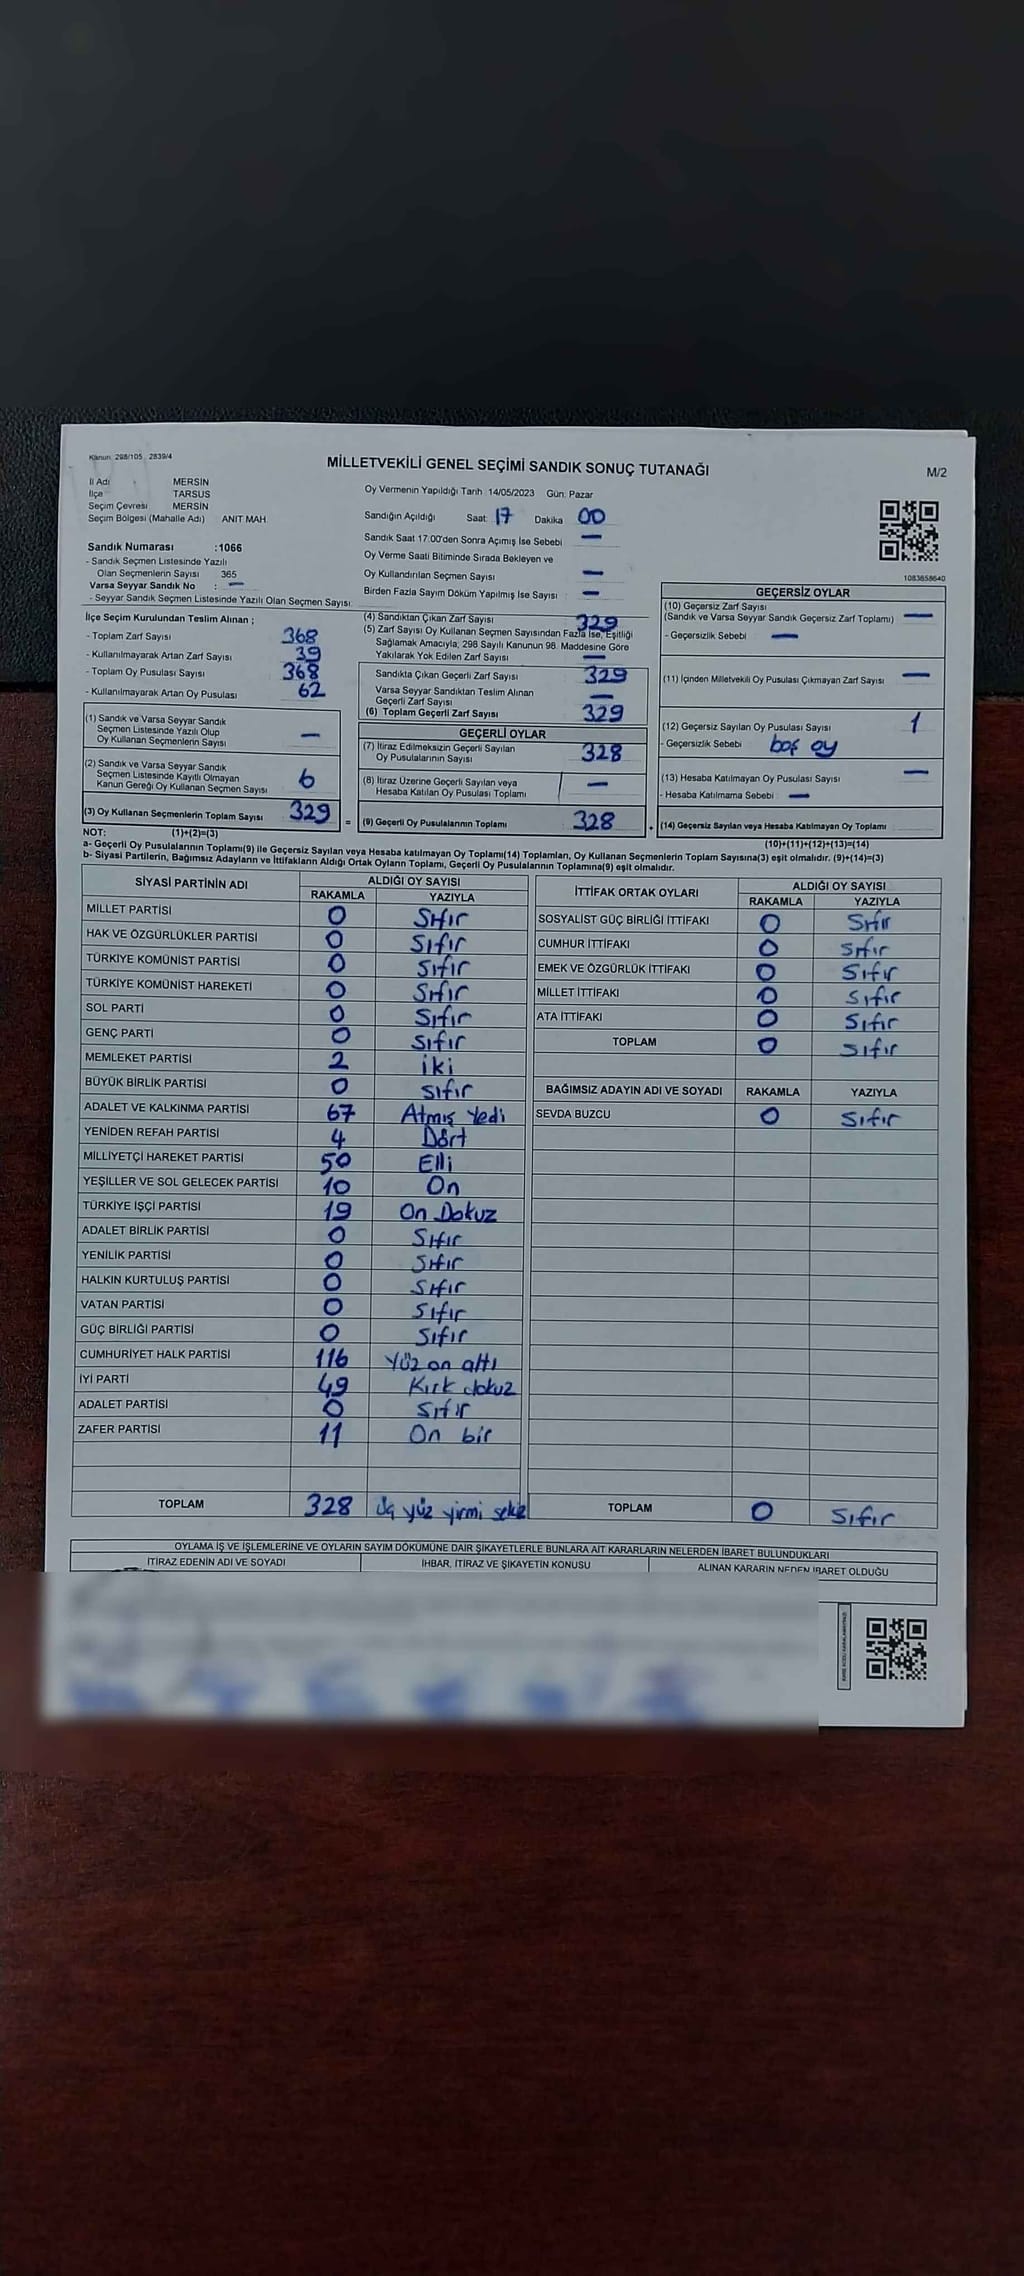 Kanun 298/105 2839/4
MİLLETVEKİLİ GENEL SEÇİMİ SANDIK SONUÇ TUTANAĞI
M/2
İl Adı MERSİN
İlçe TARSUS
Seçim Çevresi MERSİN
Seçim Bölgesi (Mahalle Adı) ANIT MAH.
Oy Vermenin Yapıldığı Tarih 14/05/2023 Gün: Pazar
Sandığın Açıldığı Saat: 17 Dakika 00
Sandık Saat 17:00'den Sonra Açımış İse Sebebi —
Oy Verme Saati Bitiminde Sırada Bekleyen ve
Oy Kullandırılan Seçmen Sayısı —
Birden Fazla Sayım Döküm Yapılmış İse Sayısı : —
Sandık Numarası :1066
- Sandık Seçmen Listesinde Yazılı
Olan Seçmenlerin Sayısı 365
Varsa Seyyar Sandık No : —
- Seyyar Sandık Seçmen Listesinde Yazılı Olan Seçmen Sayısı:
1083658640
İlçe Seçim Kurulundan Teslim Alınan ;
- Toplam Zarf Sayısı 368
- Kullanılmayarak Artan Zarf Sayısı 39
- Toplam Oy Pusulası Sayısı 368
- Kullanılmayarak Artan Oy Pusulası 62
(1) Sandık ve Varsa Seyyar Sandık
Seçmen Listesinde Yazılı Olup
Oy Kullanan Seçmenlerin Sayısı —
(2) Sandık ve Varsa Seyyar Sandık
Seçmen Listesinde Kayıtlı Olmayan
Kanun Gereği Oy Kullanan Seçmen Sayısı 6
(3) Oy Kullanan Seçmenlerin Toplam Sayısı 329 =
(4) Sandıktan Çıkan Zarf Sayısı 329
(5) Zarf Sayısı Oy Kullanan Seçmen Sayısından Fazla İse, Eşitliği
Sağlamak Amacıyla, 298 Sayılı Kanunun 98. Maddesine Göre
Yakılarak Yok Edilen Zarf Sayısı —
Sandıkta Çıkan Geçerli Zarf Sayısı 329
Varsa Seyyar Sandıktan Teslim Alınan
Geçerli Zarf Sayısı —
(6) Toplam Geçerli Zarf Sayısı 329
GEÇERLİ OYLAR
(7) İtiraz Edilmeksizin Geçerli Sayılan
Oy Pusulalarının Sayısı 328
(8) İtiraz Üzerine Geçerli Sayılan veya
Hesaba Katılan Oy Pusulası Toplamı —
(9) Geçerli Oy Pusulalarının Toplamı 328 +
GEÇERSİZ OYLAR
(10) Geçersiz Zarf Sayısı
(Sandık ve Varsa Seyyar Sandık Geçersiz Zarf Toplamı) —
- Geçersizlik Sebebi —
(11) İçinden Milletvekili Oy Pusulası Çıkmayan Zarf Sayısı —
(12) Geçersiz Sayılan Oy Pusulası Sayısı 1
- Geçersizlik Sebebi boş oy
(13) Hesaba Katılmayan Oy Pusulası Sayısı —
- Hesaba Katılmama Sebebi —
(14) Geçersiz Sayılan veya Hesaba Katılmayan Oy Toplamı
NOT: (1)+(2)=(3)
(10)+(11)+(12)+(13)=(14)
a- Geçerli Oy Pusulalarının Toplamı(9) ile Geçersiz Sayılan veya Hesaba katılmayan Oy Toplamı(14) Toplamları, Oy Kullanan Seçmenlerin Toplam Sayısına(3) eşit olmalıdır. (9)+(14)=(3)
b- Siyasi Partilerin, Bağımsız Adayların ve İttifakların Aldığı Ortak Oyların Toplamı, Geçerli Oy Pusulalarının Toplamına(9) eşit olmalıdır.
SİYASİ PARTİNİN ADI ALDIĞI OY SAYISI
RAKAMLA YAZIYLA
MİLLET PARTİSİ 0 Sıfır
HAK VE ÖZGÜRLÜKLER PARTİSİ 0 Sıfır
TÜRKİYE KOMÜNİST PARTİSİ 0 Sıfır
TÜRKİYE KOMÜNİST HAREKETİ 0 Sıfır
SOL PARTİ 0 Sıfır
GENÇ PARTİ 0 Sıfır
MEMLEKET PARTİSİ 2 iki
BÜYÜK BİRLİK PARTİSİ 0 sıfır
ADALET VE KALKINMA PARTİSİ 67 Atmış Yedi
YENİDEN REFAH PARTİSİ 4 Dört
MİLLİYETÇİ HAREKET PARTİSİ 50 Elli
YEŞİLLER VE SOL GELECEK PARTİSİ 10 On
TÜRKİYE İŞÇİ PARTİSİ 19 On Dokuz
ADALET BİRLİK PARTİSİ 0 Sıfır
YENİLİK PARTİSİ 0 Sıfır
HALKIN KURTULUŞ PARTİSİ 0 Sıfır
VATAN PARTİSİ 0 Sıfır
GÜÇ BİRLİĞİ PARTİSİ 0 Sıfır
CUMHURİYET HALK PARTİSİ 116 Yüz on altı
İYİ PARTİ 49 Kırk dokuz
ADALET PARTİSİ 0 Sıfır
ZAFER PARTİSİ 11 On bir
TOPLAM 328 üç yüz yirmi sekiz
İTTİFAK ORTAK OYLARI ALDIĞI OY SAYISI
RAKAMLA YAZIYLA
SOSYALİST GÜÇ BİRLİĞİ İTTİFAKI 0 Sıfır
CUMHUR İTTİFAKI 0 Sıfır
EMEK VE ÖZGÜRLÜK İTTİFAKI 0 Sıfır
MİLLET İTTİFAKI 0 Sıfır
ATA İTTİFAKI 0 Sıfır
TOPLAM 0 Sıfır
BAĞIMSIZ ADAYIN ADI VE SOYADI RAKAMLA YAZIYLA
SEVDA BUZCU 0 Sıfır
TOPLAM 0 Sıfır
OYLAMA İŞ VE İŞLEMLERİNE VE OYLARIN SAYIM DÖKÜMÜNE DAİR ŞİKAYETLERLE BUNLARA AİT KARARLARIN NELERDEN İBARET BULUNDUKLARI
İTİRAZ EDENİN ADI VE SOYADI İHBAR, İTİRAZ VE ŞİKAYETİN KONUSU ALINAN KARARIN NEDEN İBARET OLDUĞU